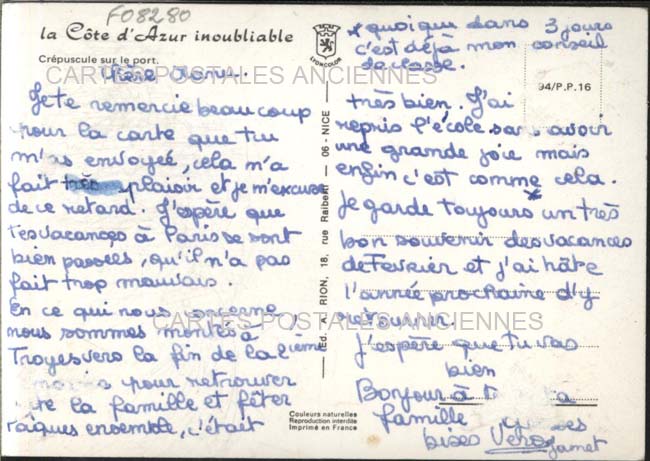 F08280
la Côte d'Azur inoubliable
Crépuscule sur le port.
CARTES POSTALES ANCIENNES
Je te remercie beaucoup
pour la carte que tu
m'as envoyée, cela m'a
fait très plaisir et je m'excuse
de ce retard. J'espère que
tes vacances à Paris se sont
bien passées, qu'il n'a pas
fait trop mauvais.
En ce qui nous concerne
nous sommes montés à
Troyes vers la fin de la 2ième
pour retrouver
la famille et fêter
Pâques ensemble, c'était
LYONCOLOR
Ed. A. RION, 18, rue Raibert — 06 - NICE
Couleurs naturelles
Reproduction interdite
Imprimé en France
* quoique dans 3 jours
c'est déjà mon conseil
de classe.
94/P.P.16
très bien. J'ai
repris l'école sans avoir
une grande joie mais
enfin c'est comme cela.
*
Je garde toujours un très
bon souvenir des vacances
de Fevrier et j'ai hâte
l'année prochaine d'y
retourner.
CARTES POSTALES ANCIENNES
J'espère que tu vas
bien
Bonjour à ta
famille
bises Vero